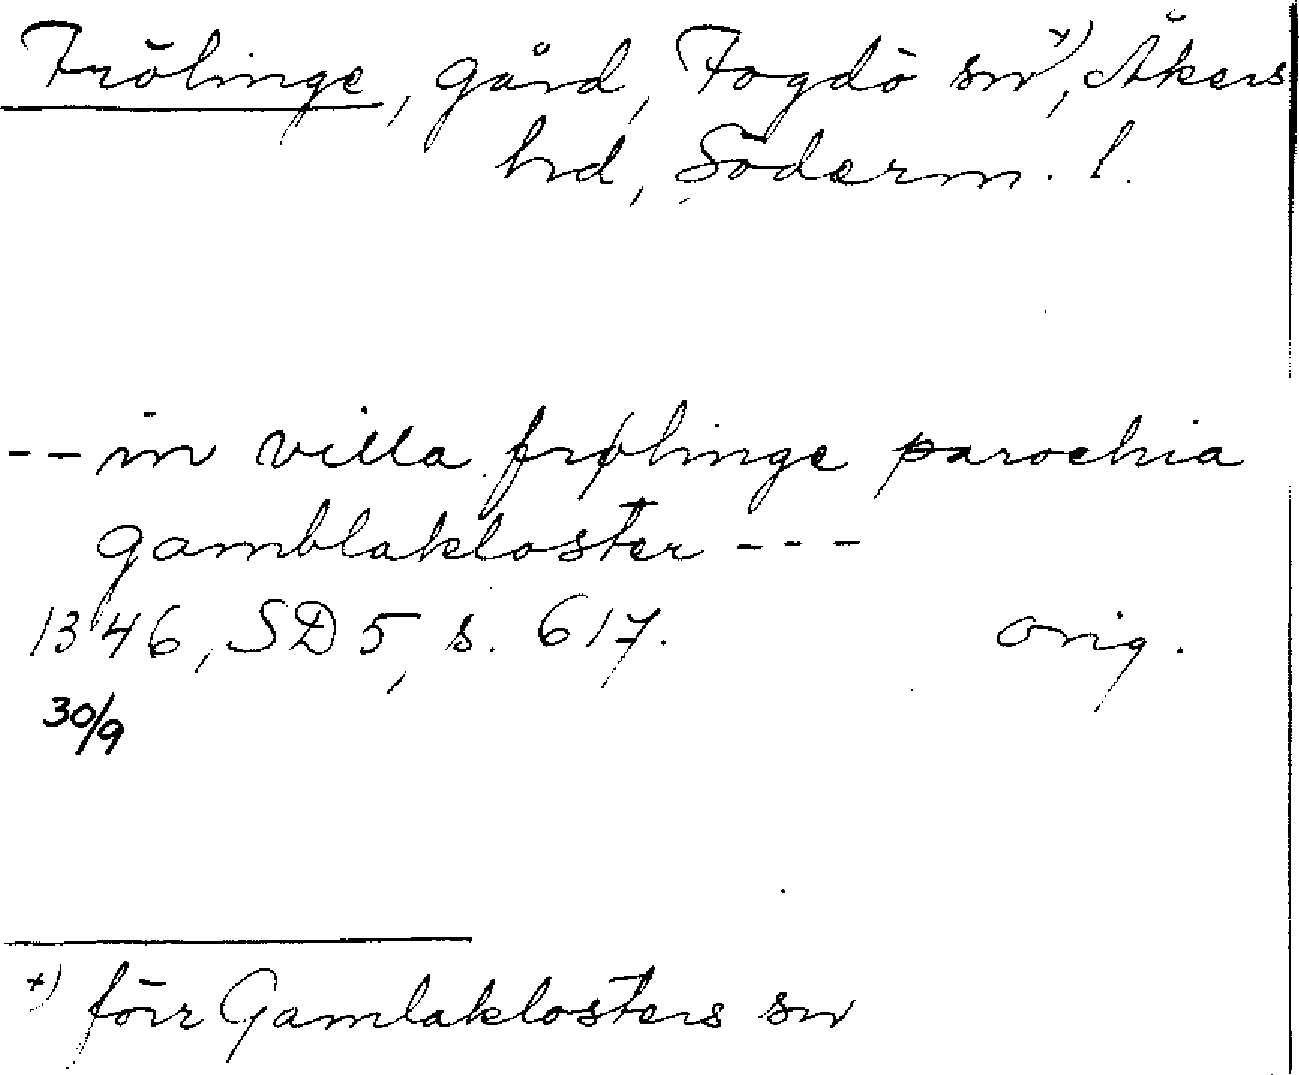 Frölinge, gård, Fogdö sn*), Åkers
hd, Söderm. l.
-- in villa frølinge parochia
gamblakloster ---
1346, SD 5, s. 617. orig.
30/9
*) förr Gamlaklosters sn